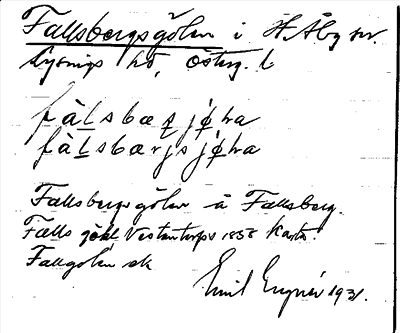 Fallsbergsgölen i H. Åby sn.
Lysings hd, Östergl
fàlsbæzjøna
fàlsbærjsjøna
Fallsbergsgölen å Fallsberg.
Falls göhl Västantorps 1858 Karta
Fallgölen ek
Emil 1931.